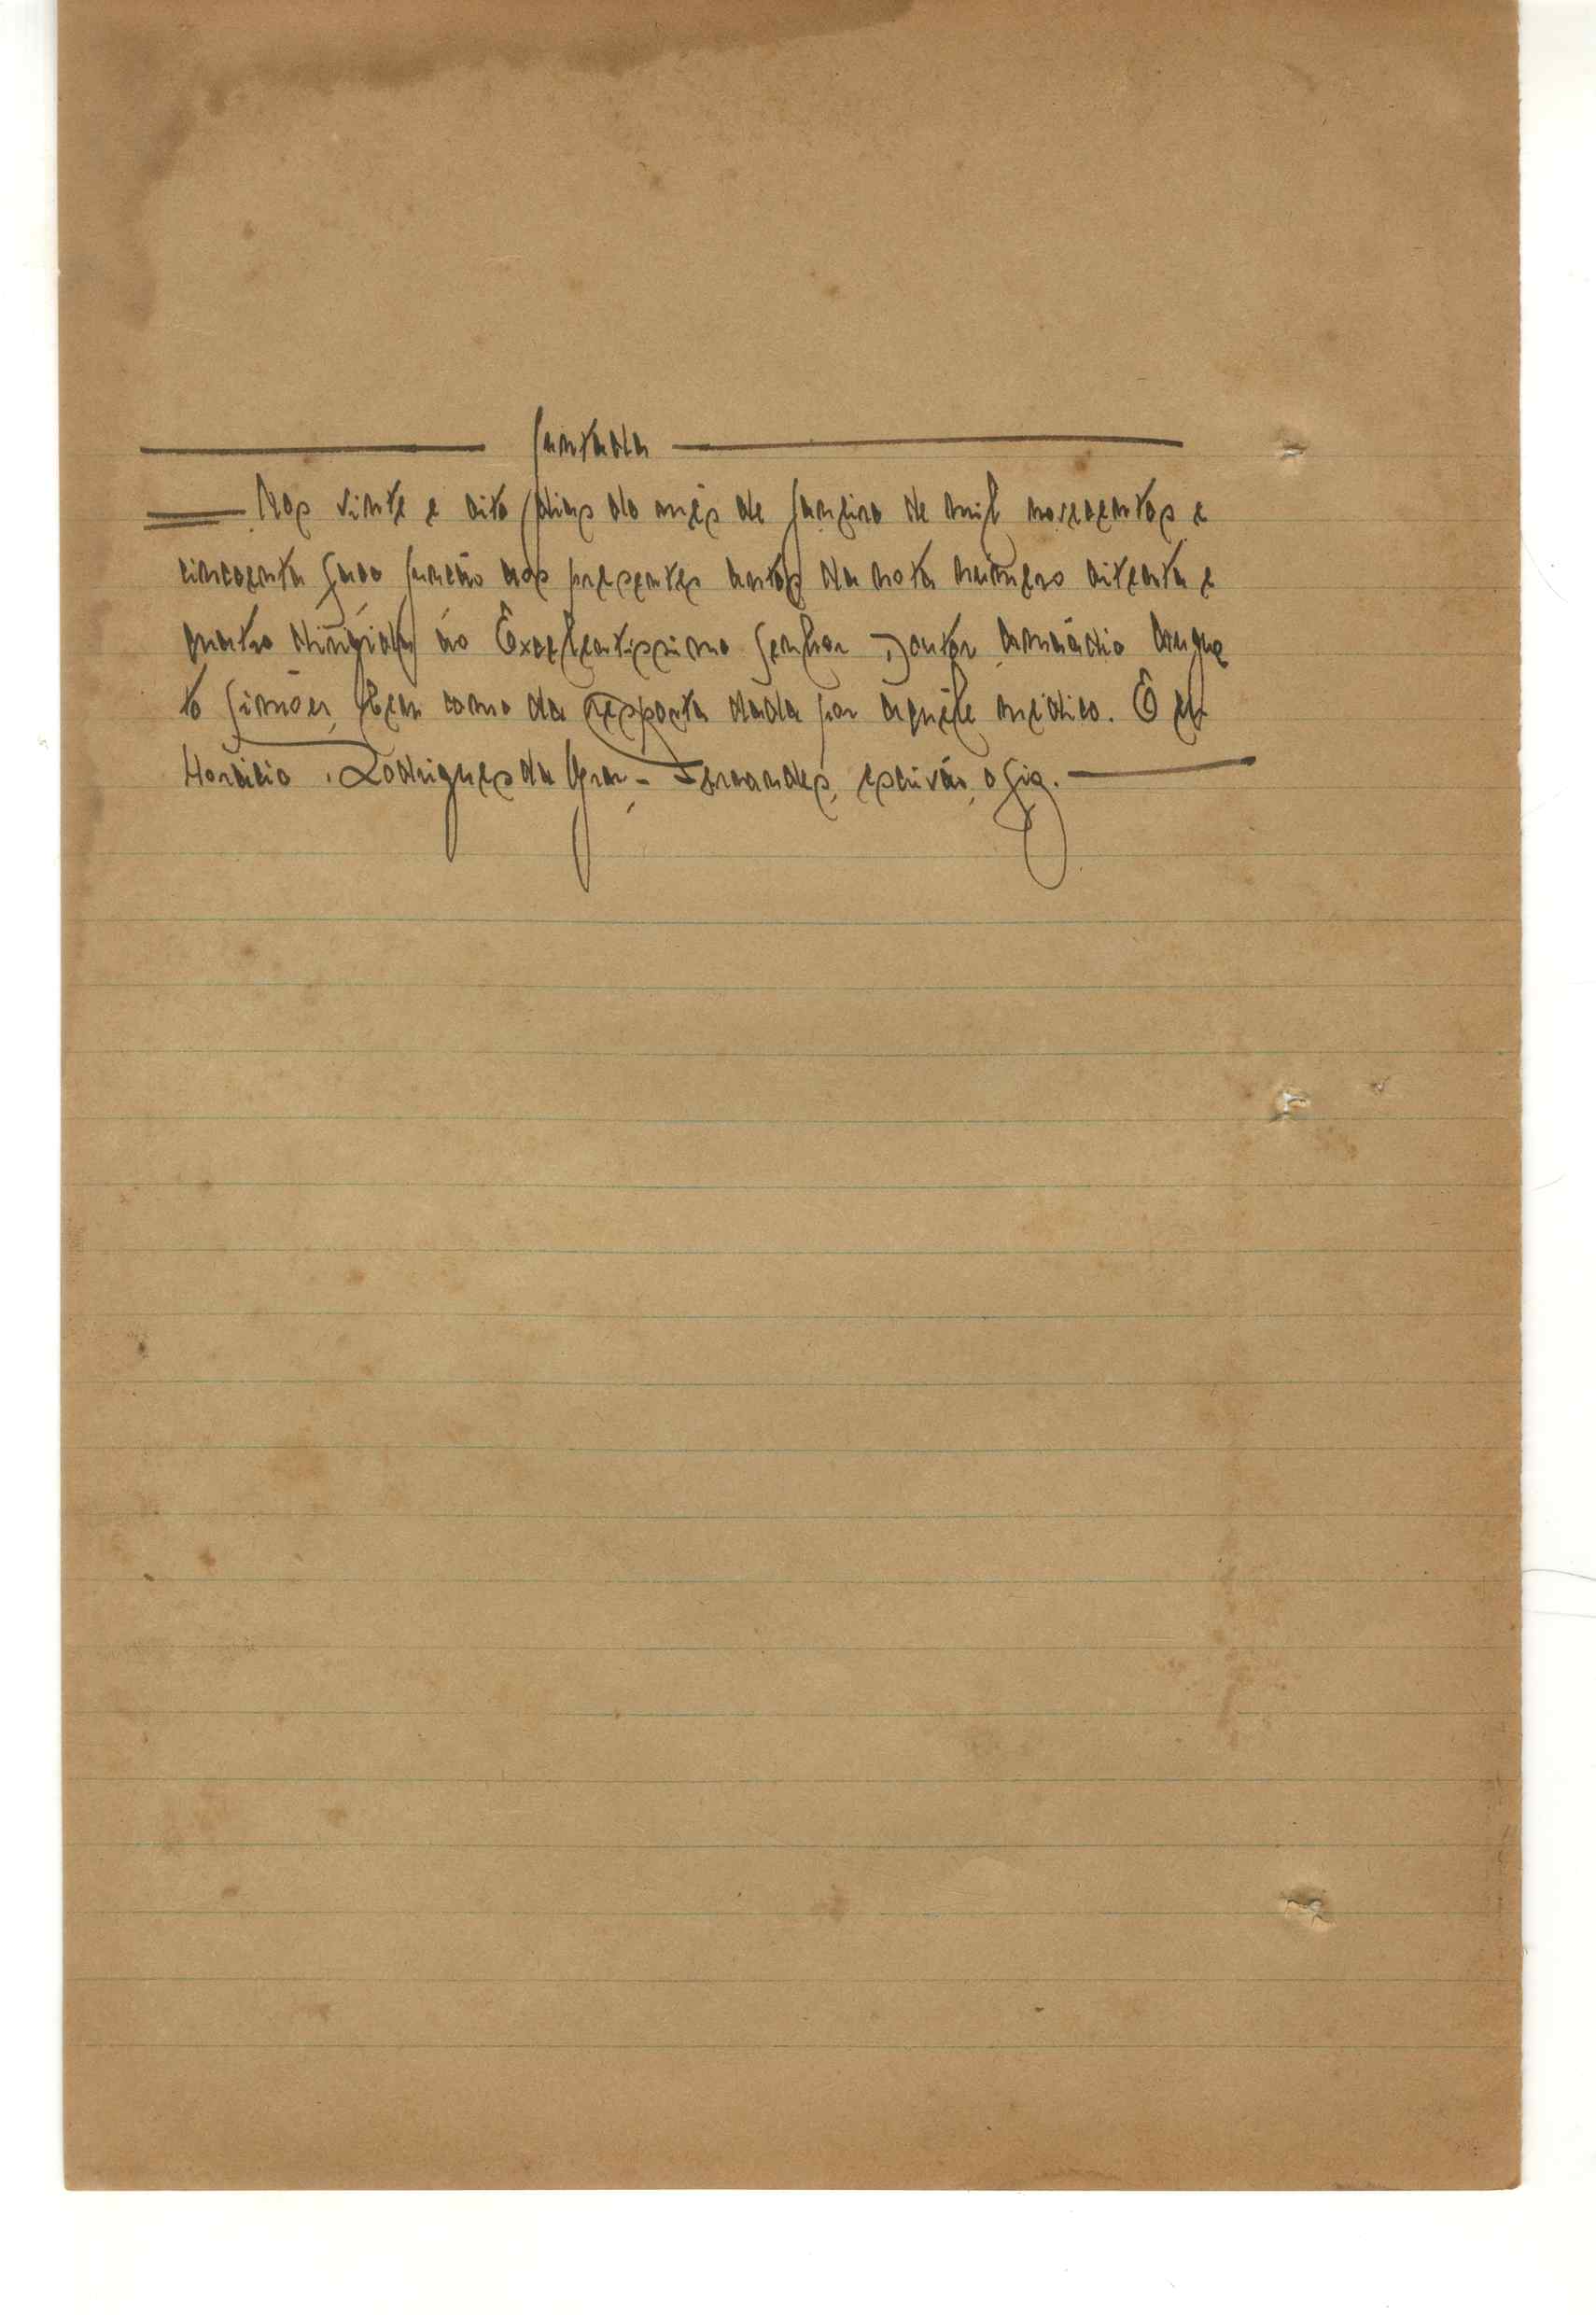 Juntada
Aos vinte e oito dias do mês de Janeiro de mil novecentos e
cincoenta faço junção aos presentes autos da nota número oitenta e
quatro dirigida ao Excelentissimo Senhor Doutor Amadio Augus
to Simões, bem como da resposta dada por aquele médico. E eu
Horácio Rodrigues da Fernandes, escrivão, o fiz.